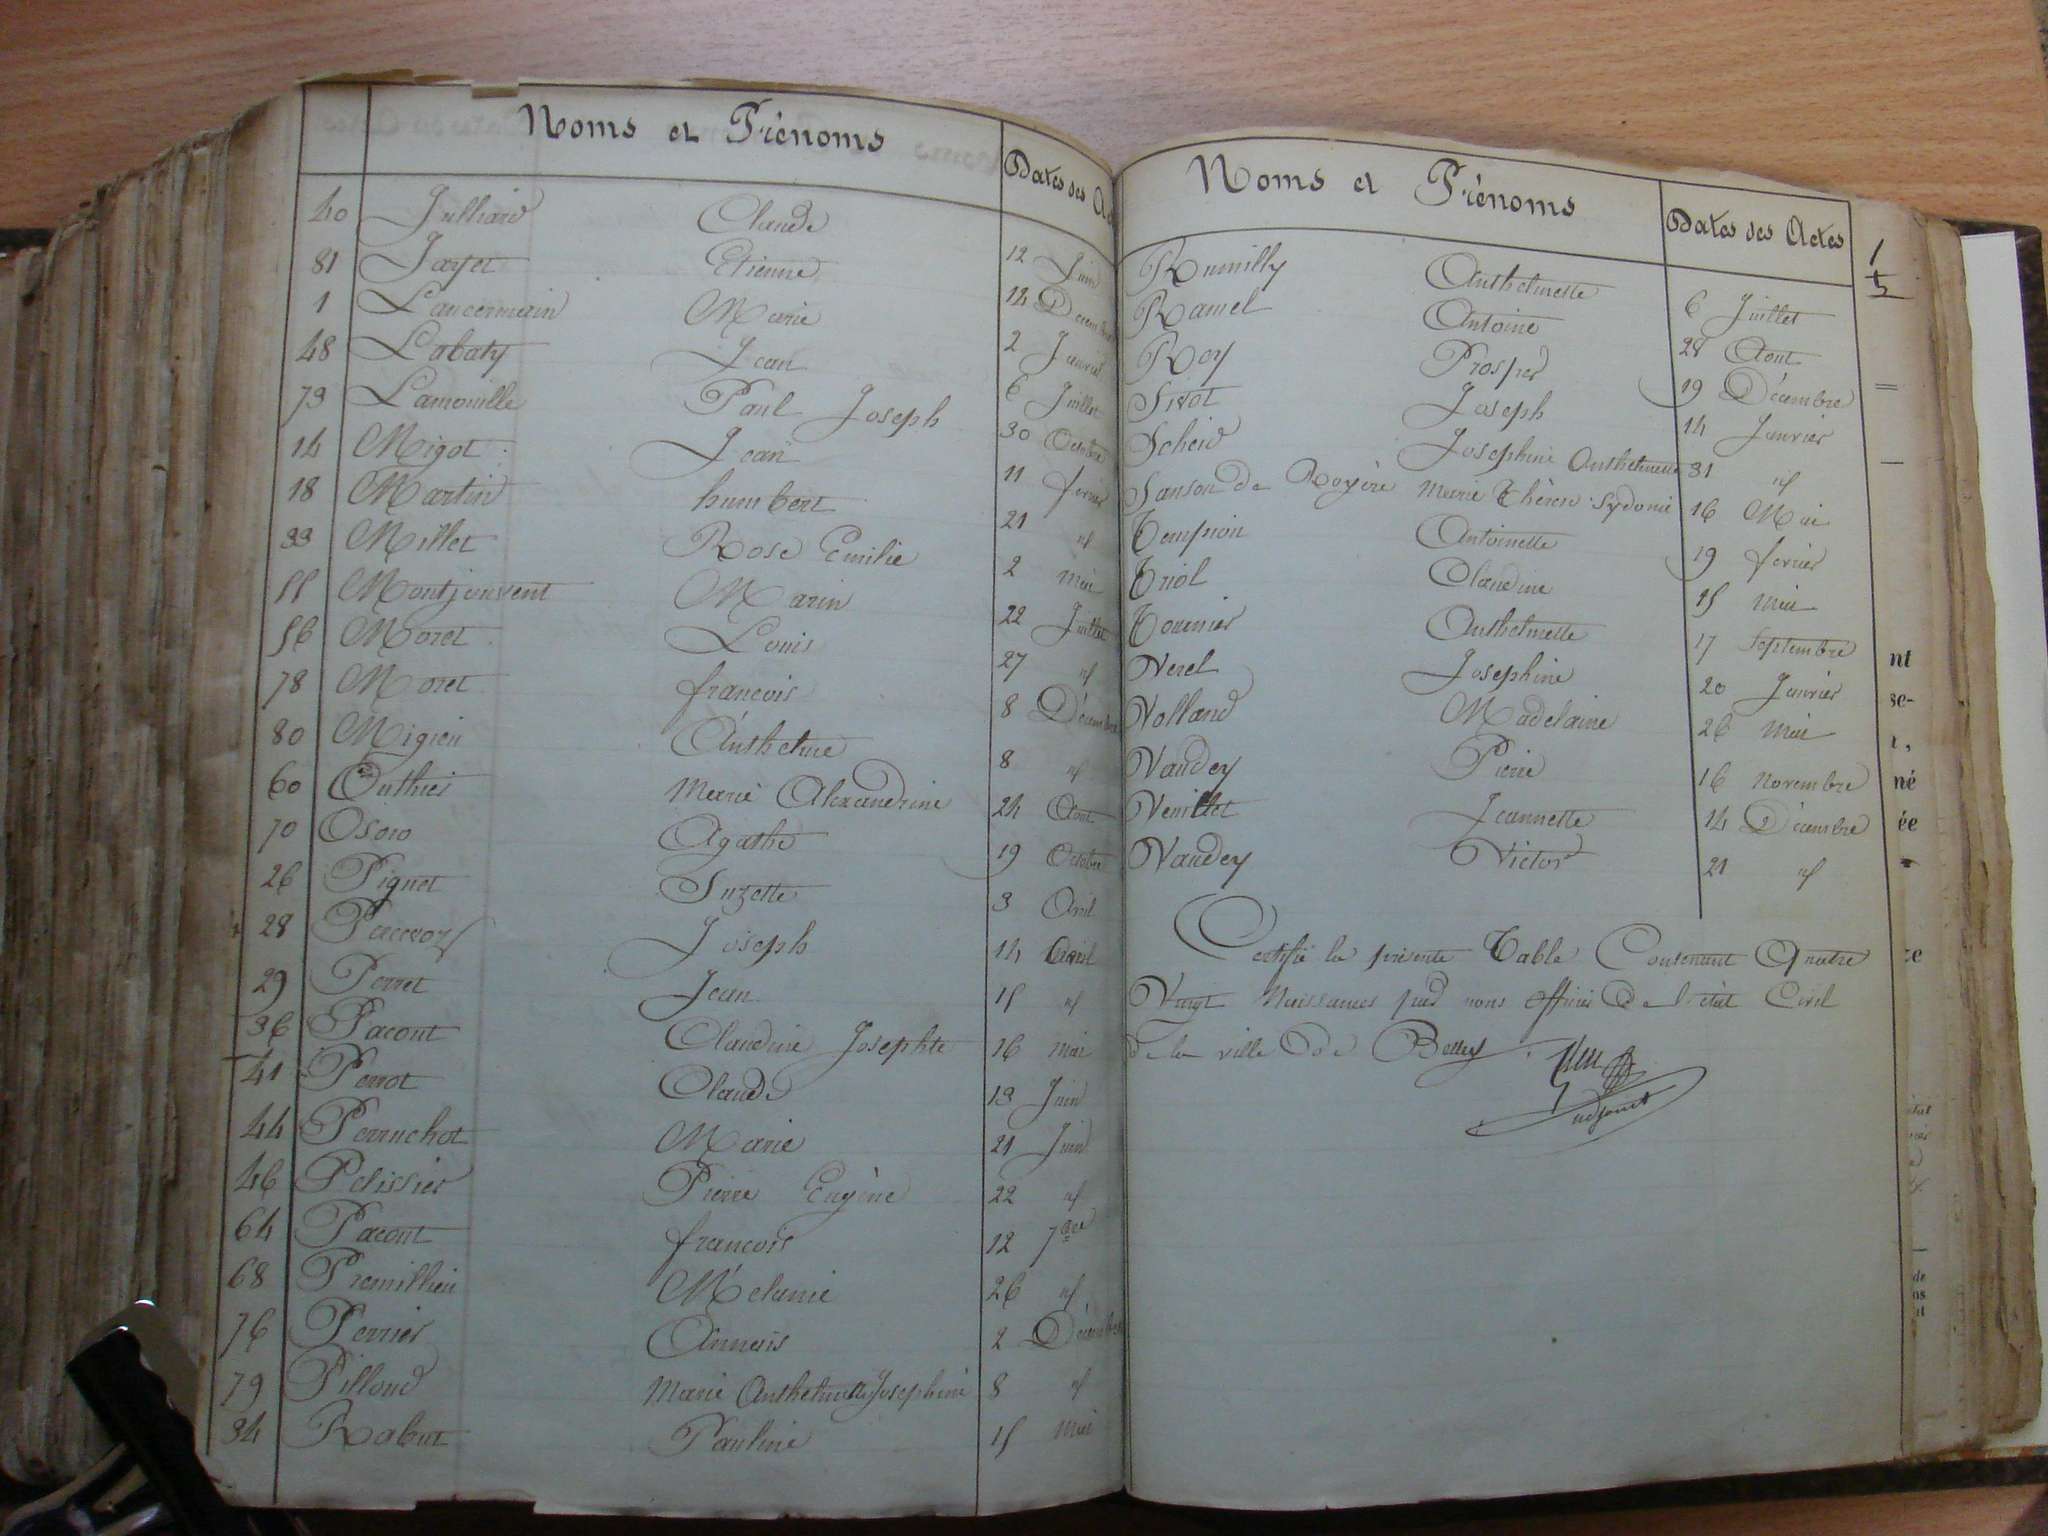 Noms et Prénoms Dates des Ac
40 Julliard Claude 12 Juin
81 Jayet Etienne 14 Décembre
1 Lancermerin Marie 2 Janvier
48 Labaty Jean 6 Juillet
73 Lamouille Paul Joseph 30 Octobre
14 Migot Jean 11 fevrier
18 Martin humbert 21 id
33 Millet Rose Emilie 2 Mai
55 Montjouvent Marin 22 Juillet
56 Moret Louis 27 id
78 Moret francois 8 Décembre
80 Migieu Anthelme 8 id
60 Outhier Marie Alexandrine 24 Aout
70 Osoro Agathe 19 Octobre
26 Pignet Suzette 3 Avril
28 Joseph 14 Avril
29 Perret Jean 15 id
36 Pacout Claudine Josephte 16 mai
41 Perrot Claude 13 Juin
44 Perruchot Marie 21 Juin
46 Pelissier Pierre Eugène 22 id
64 Pacout francois 12 7bre
68 Premillieu Mélanie 26 id
76 Perrier Annais 2 Décembre
79 Pilloud Marie Anthelmette Josephine 8 id
34 Rabut Pauline 15 Mai
Noms et Prénoms Dates des Actes
Rumilly Anthelmette 6 Juillet
Ramel Antoine 28 Aout
Roy Prosper 19 Décembre
Sivot Joseph 14 Janvier
Scheid Josephine Anthelmette 31 id
Sanson de Royère Marie Thérèse Sydonie 16 Mai
Tempion Antoinette 19 fevrier
Triol Claudine 15 Mai
Tournier Anthelmette 17 Septembre
Verel Josephine 20 Janvier
Volland Madelaine 26 Mai
Vaudey Pierre 16 Novembre
Venillet Jeannette 14 Décembre
Vaudey Victor 21 id
Certifié la présente Table Contenant Quatre
Vingt Naissances par nous officier De l'état Civil
de la ville De Belley
nt
se-
t,
né
ée